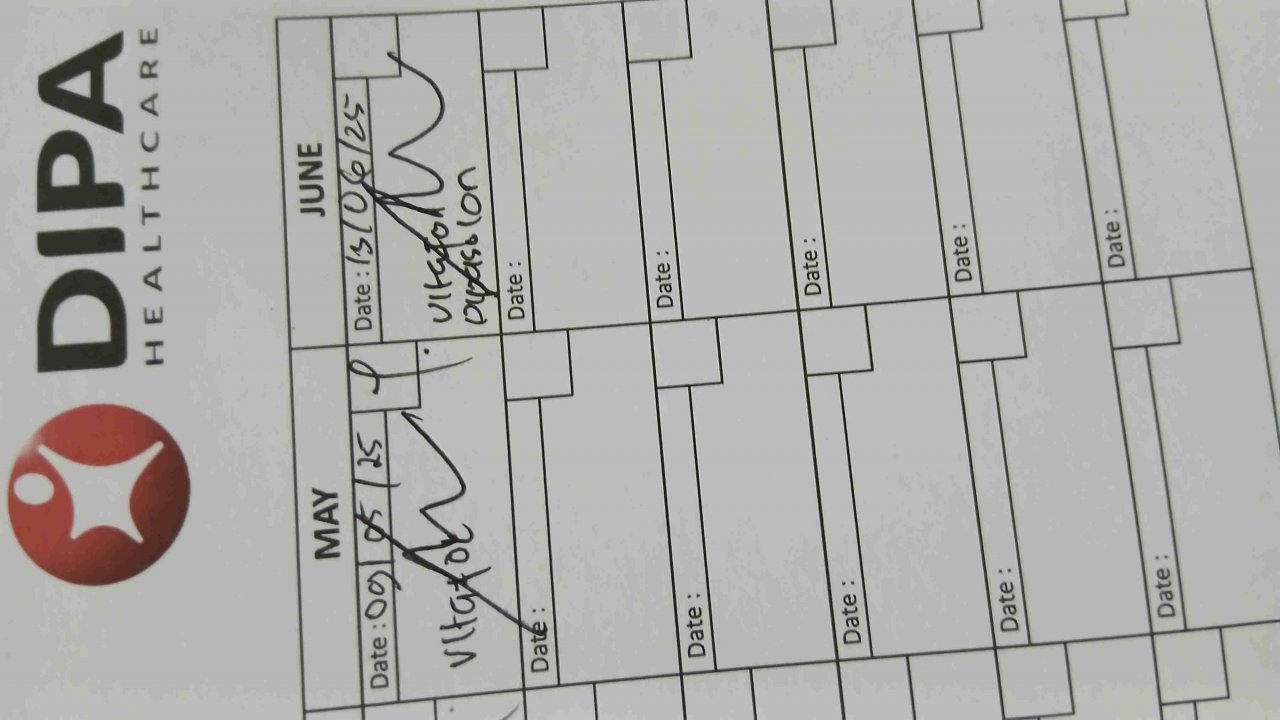 DIPA
HEALTHCARE
MAY
JUNE
Date : 09/05/25
Date : 13/06/25
Date :
Date :
Date :
Date :
Date :
Date :
Date :
Date :
Date :
Date :